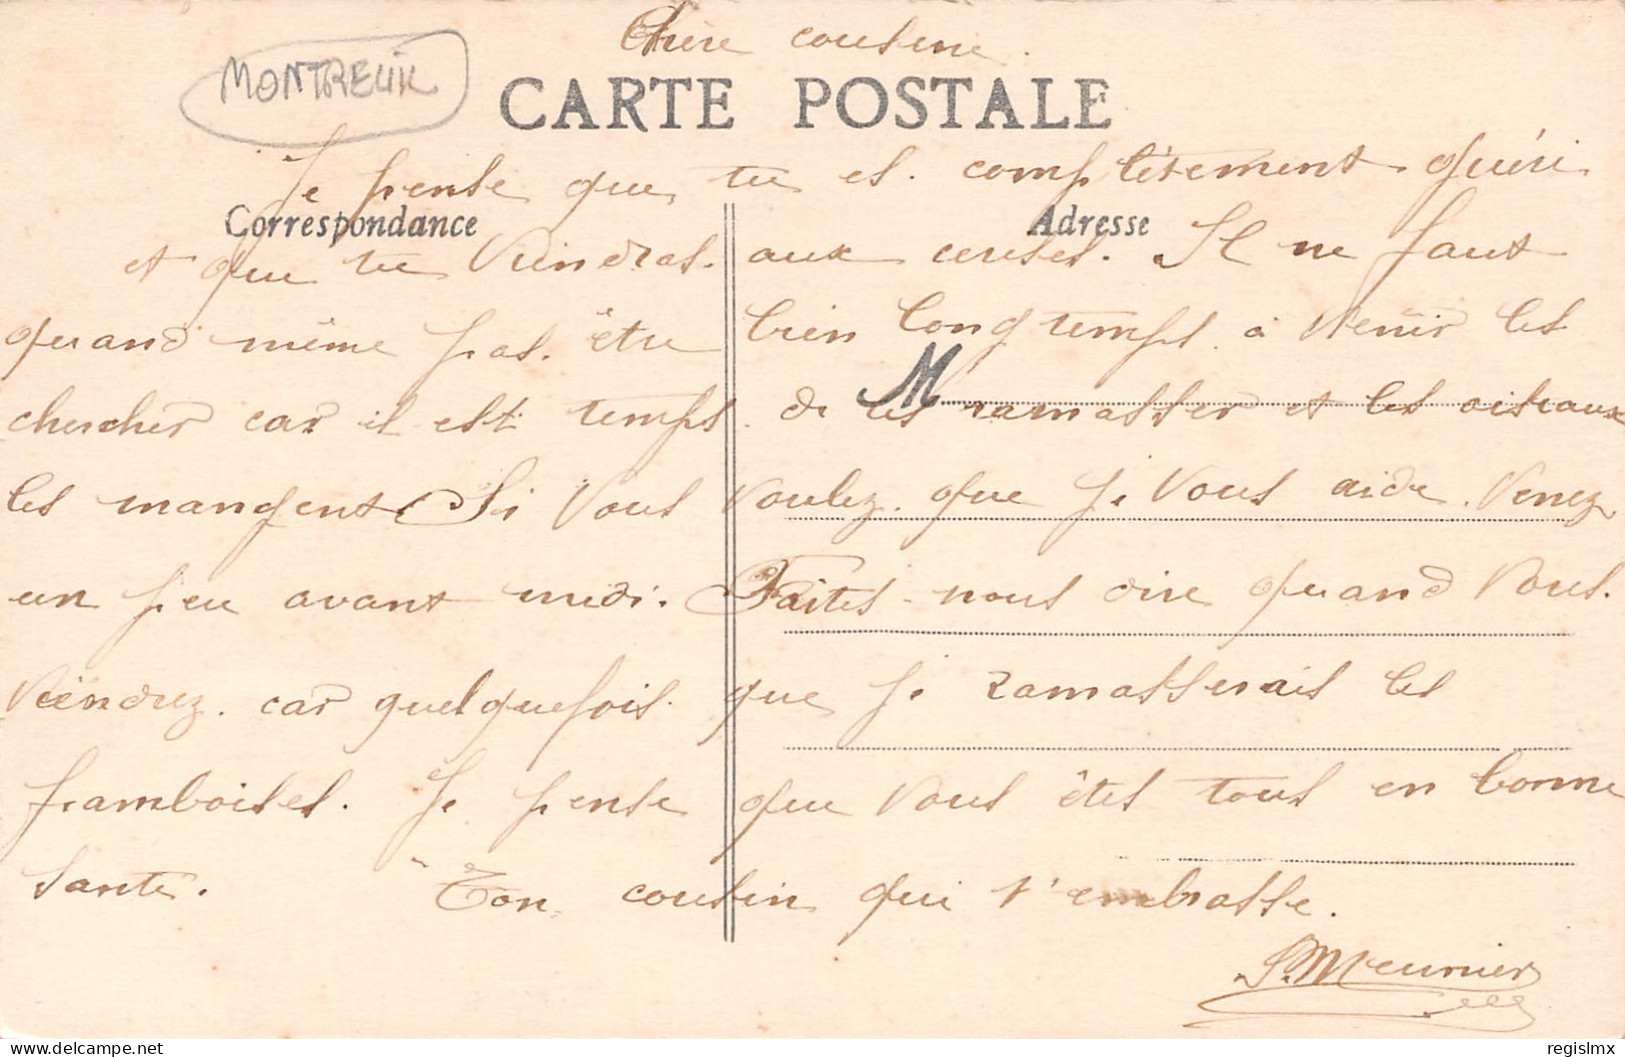 Chère cousine.
MONTREUIL
CARTE POSTALE
Je pense que tu es. complètement guéri
Correspondance
Adresse
et que tu viendras. aux cerises. Il ne faut
quand même pas. être bien longtemps à venir les
chercher car il est temps. de les ramasser et les oiseaux
M
les mangent. Si vous voulez. que je vous aide. venez
un peu avant midi. Faites-nous dire quand vous.
viendrez. car quelquefois. que je ramasserais les
framboises. Je pense que vous êtes tous en bonne
santé. Ton cousin qui t'embrasse.
Meunier
delcampe.net
regislmx